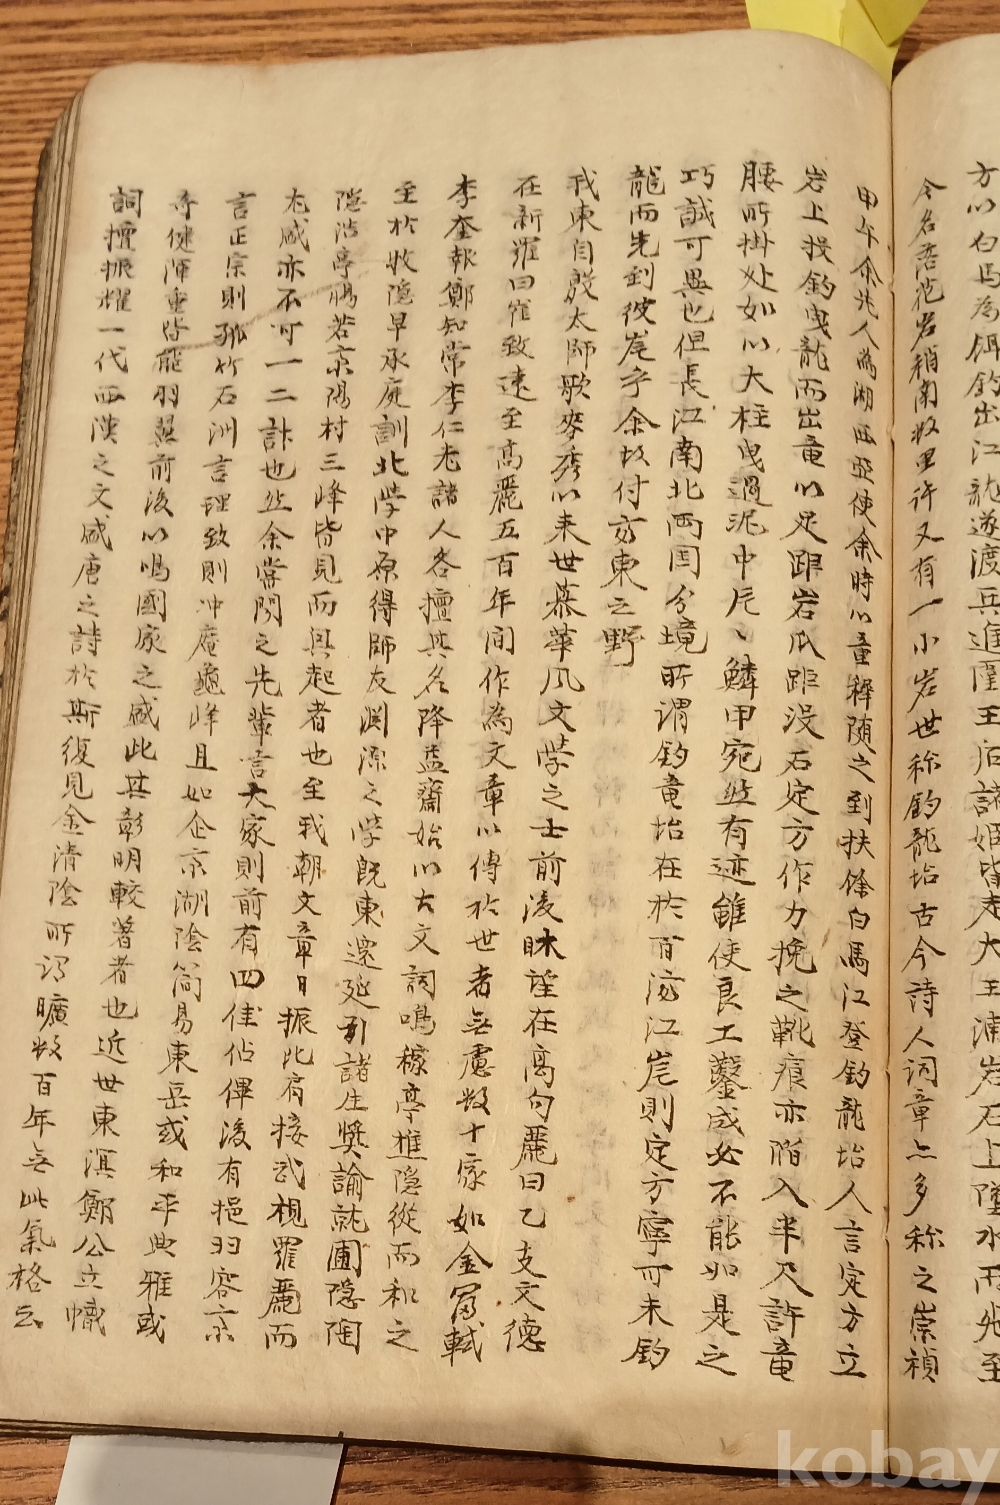 方以白馬為餌釣出江龍遂渡兵進圍王后諸姬皆走大王浦岩石上墮水而死至
今名落花岩稍南數里許又有一小岩世称釣龍坮古今詩人詞章亦多称之崇禎
甲午余先人為湖西亞使余時以童穉随之到扶餘白馬江登釣龍坮人言定方立
岩上投釣曳龍而出竜以足距岩爪距没石定方作力挽之靴痕亦陷入半尺許竜
腰所掛处如以大柱曳過泥中片〻鱗甲宛然有迹雖使良工鑿成必不能如是之
巧誠可異也但長江南北两囯分境所谓釣竜坮在於百濟江崖則定方寧可未釣
龍而先到彼崖乎余故付齐東之野
我東自殷太師歌麥秀以来世慕華风文学之士前後眛望在高句麗曰乙支文德
在新羅曰崔致遠至高麗五百年间作為文章以傳於世者無慮數十家如金富軾
李奎報鄭知常李仁老諸人各擅其名降益齋始以古文詞鳴稼亭樵隐從而和之
至於牧隐早承庭訓北学中原得師友渊源之学既東還延引諸生奬諭就圃隐陶
隠浩亭惕若京陽村三峰皆見而興起者也至我朝文章日振比肩接武視羅麗而
尤盛亦不可一二計也然余嘗問之先輩言大家則前有四佳佔俾後有挹翠容斎
言正宗則孤竹石洲言理致則冲庵龜峰且如企京湖陰簡易東岳或和平典雅或
奇健渾重皆能羽翼前後以鳴國家之盛此其彰明較著者也近世東溟鄭公立幟
詞擅振耀一代西漢之文盛唐之詩於斯復見金清陰所谓曠数百年無此氣格云